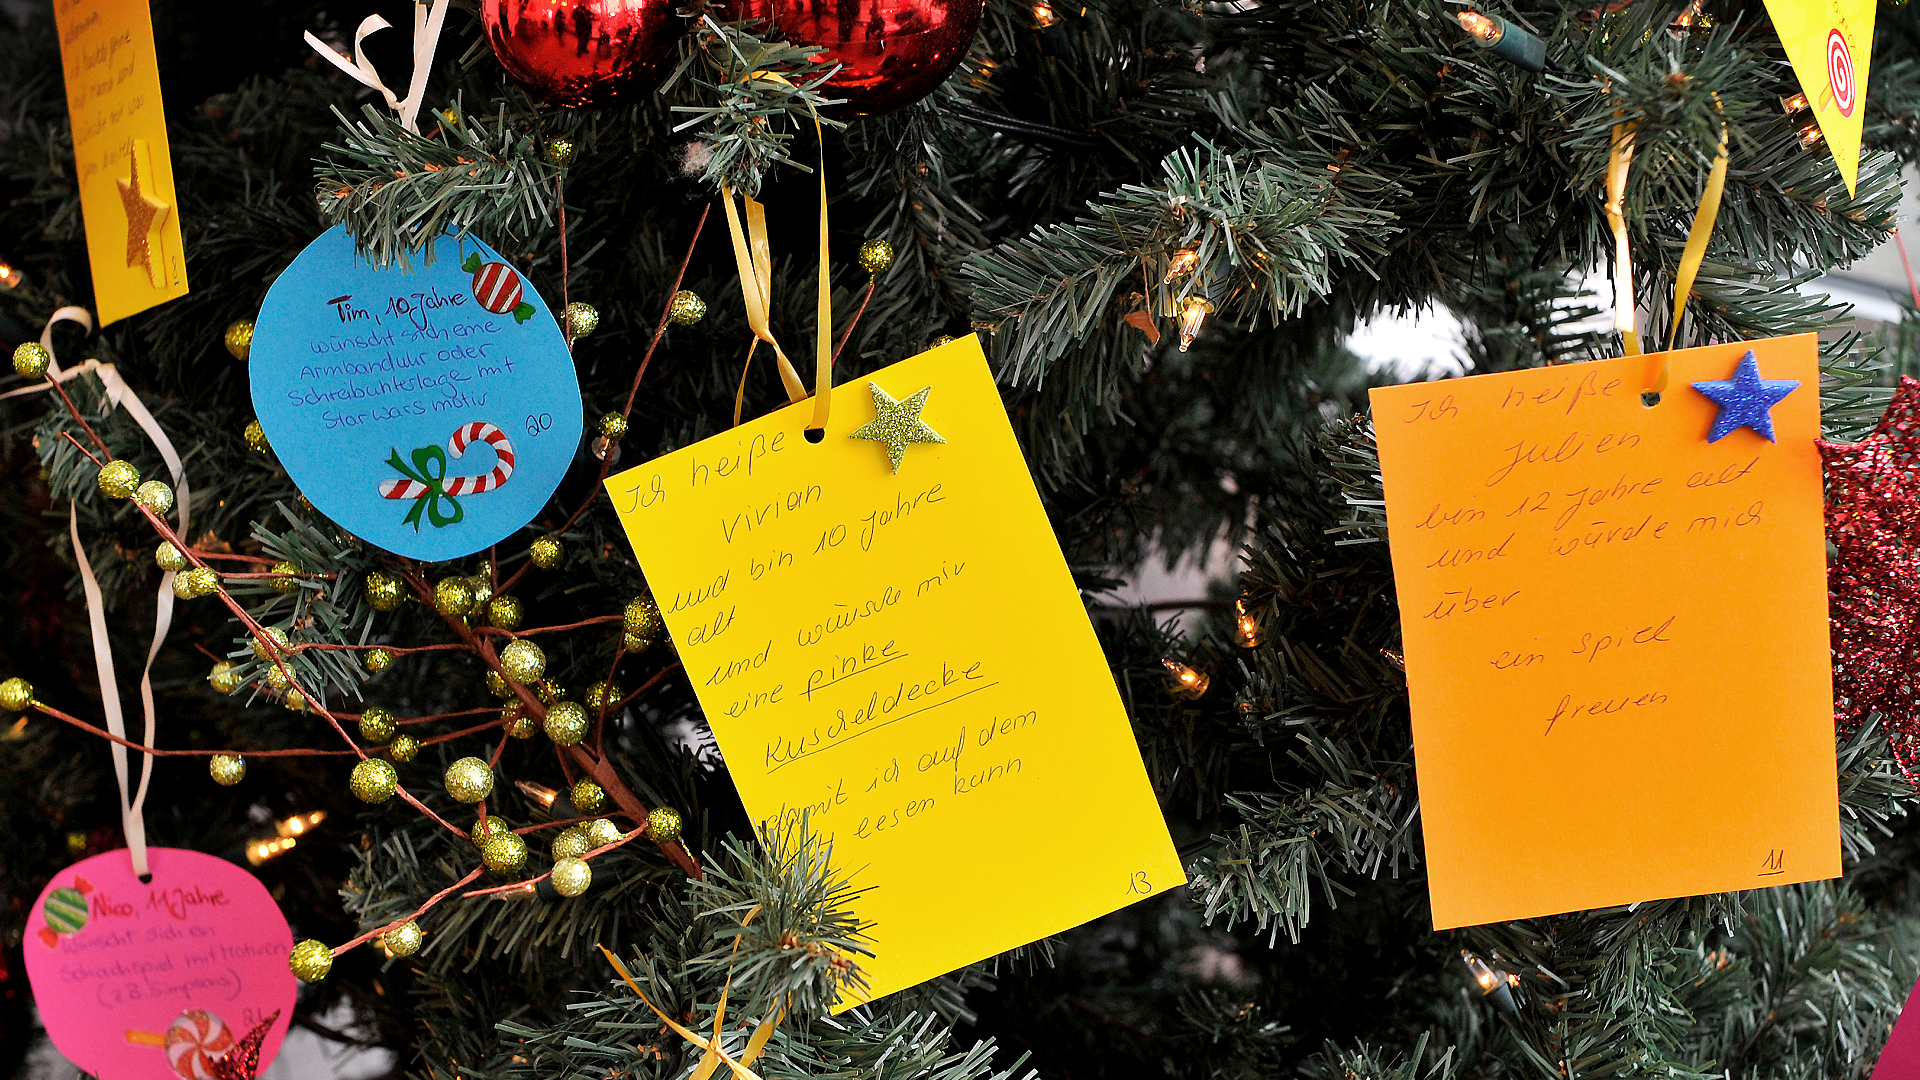 Tim, 10 Jahre
wünscht sich eine
Armbanduhr oder
Schreibunterlage mit
Starwars motiv
20
Ich heiße
Vivian
und bin 10 Jahre
alt
und wünsche mir
eine pinke
Kuscheldecke
damit ich auf dem
lesen kann
13
Ich heiße
Julien
bin 12 Jahre alt
und würde mich
über
ein spiel
freuen
11
Nico, 11 Jahre
wünscht sich ein
Schachspiel mit Motiven
(z.B. Simpsons)
21